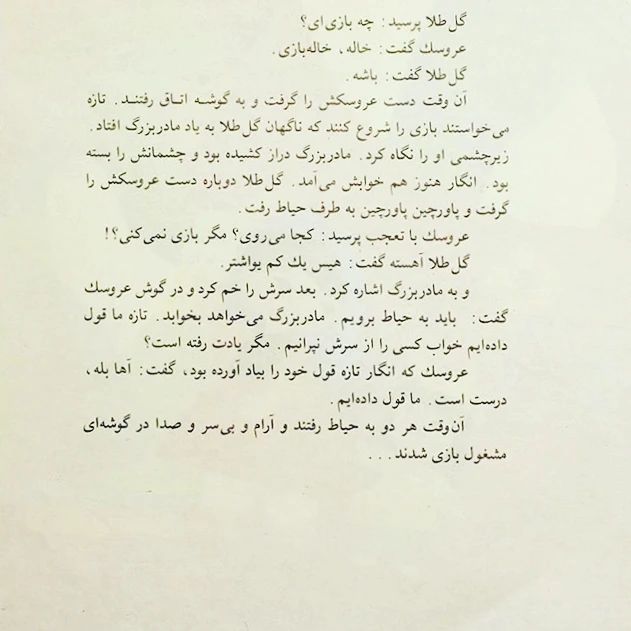 گل‌طلا پرسید: چه بازی‌ای؟
عروسك گفت: خاله، خاله‌بازی.
گل‌طلا گفت: باشه.
آن وقت دست عروسکش را گرفت و به گوشه اتاق رفتند. تازه
می‌خواستند بازی را شروع کنند که ناگهان گل‌طلا به یاد مادربزرگ افتاد.
زیرچشمی او را نگاه کرد. مادربزرگ دراز کشیده بود و چشمانش را بسته
بود. انگار هنوز هم خوابش می‌آمد. گل‌طلا دوباره دست عروسکش را
گرفت و پاورچین پاورچین به طرف حیاط رفت.
عروسك با تعجب پرسید: کجا می‌روی؟ مگر بازی نمی‌کنی؟!
گل‌طلا آهسته گفت: هیس یك کم یواشتر.
و به مادربزرگ اشاره کرد. بعد سرش را خم کرد و در گوش عروسك
گفت: باید به حیاط برویم. مادربزرگ می‌خواهد بخوابد. تازه ما قول
داده‌ایم خواب کسی را از سرش نپرانیم. مگر یادت رفته است؟
عروسك که انگار تازه قول خود را بیاد آورده بود، گفت: آها بله،
درست است. ما قول داده‌ایم.
آن‌وقت هر دو به حیاط رفتند و آرام و بی‌سر و صدا در گوشه‌ای
مشغول بازی شدند...